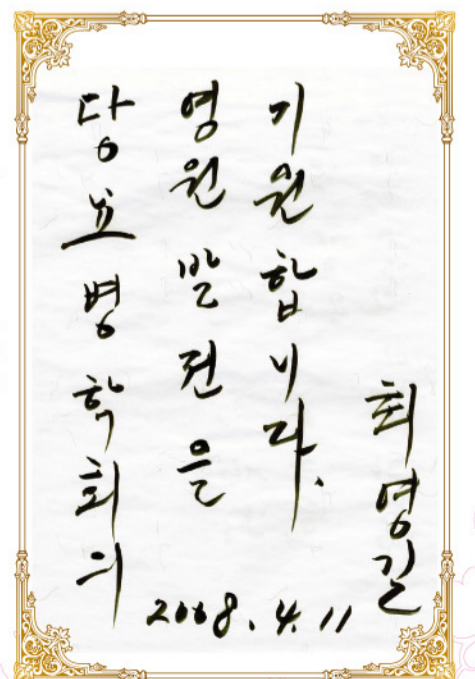 당뇨병학회의
영원 발전을
기원합니다.
최영길
2008. 4. 11